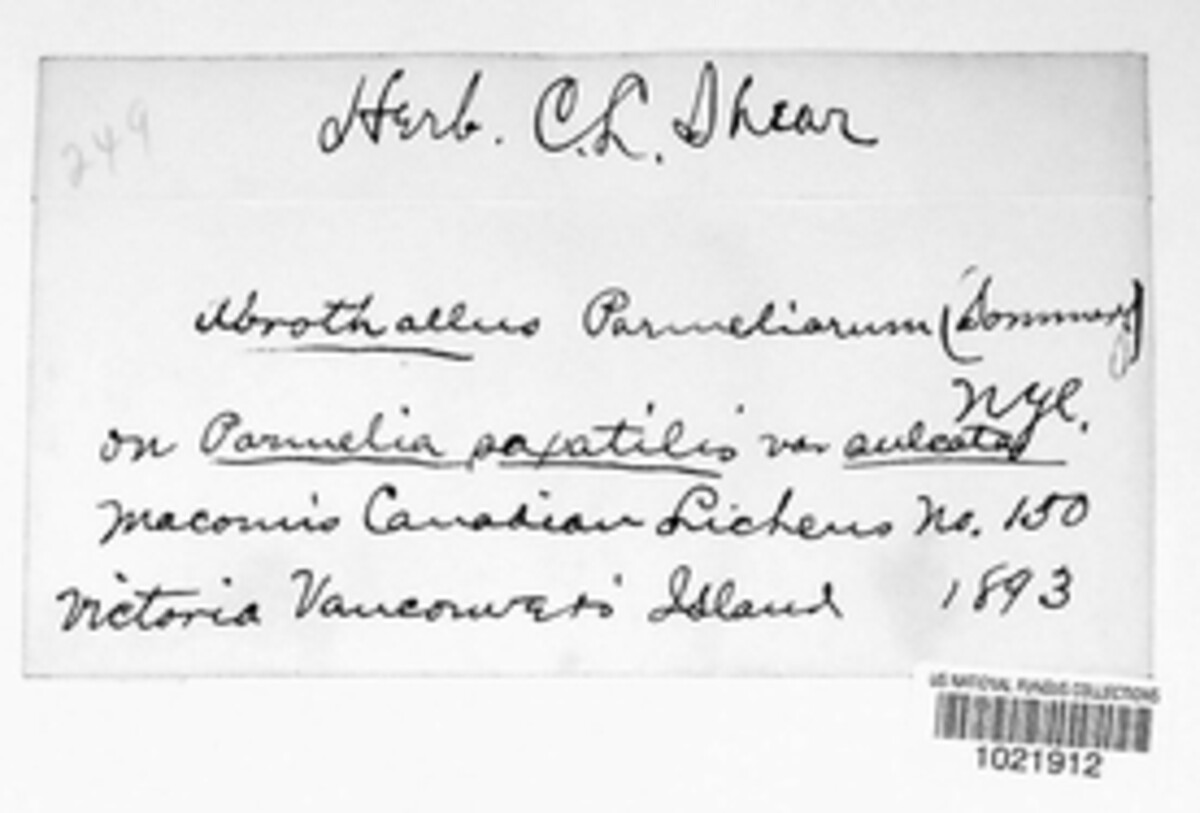 249
Herb. C.L. Shear
Abrothallus Parmeliarum (Sommerf)
Nyl.
on Parmelia saxatilis var sulcata
Macoun's Canadian Lichens No. 150
Victoria Vancouver's Island 1893
US NATIONAL FUNGUS COLLECTIONS
1021912